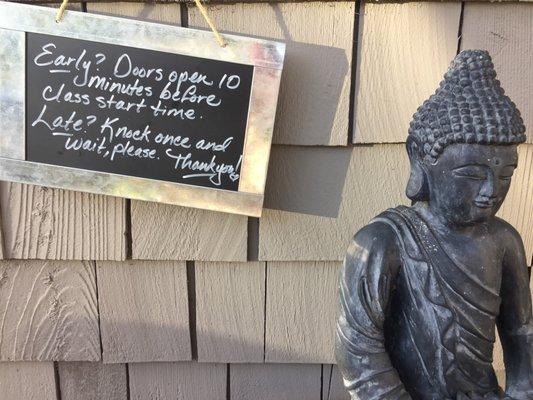 Early? Doors open 10
minutes before
class start time.
Late? Knock once and
wait, please. Thankyou!